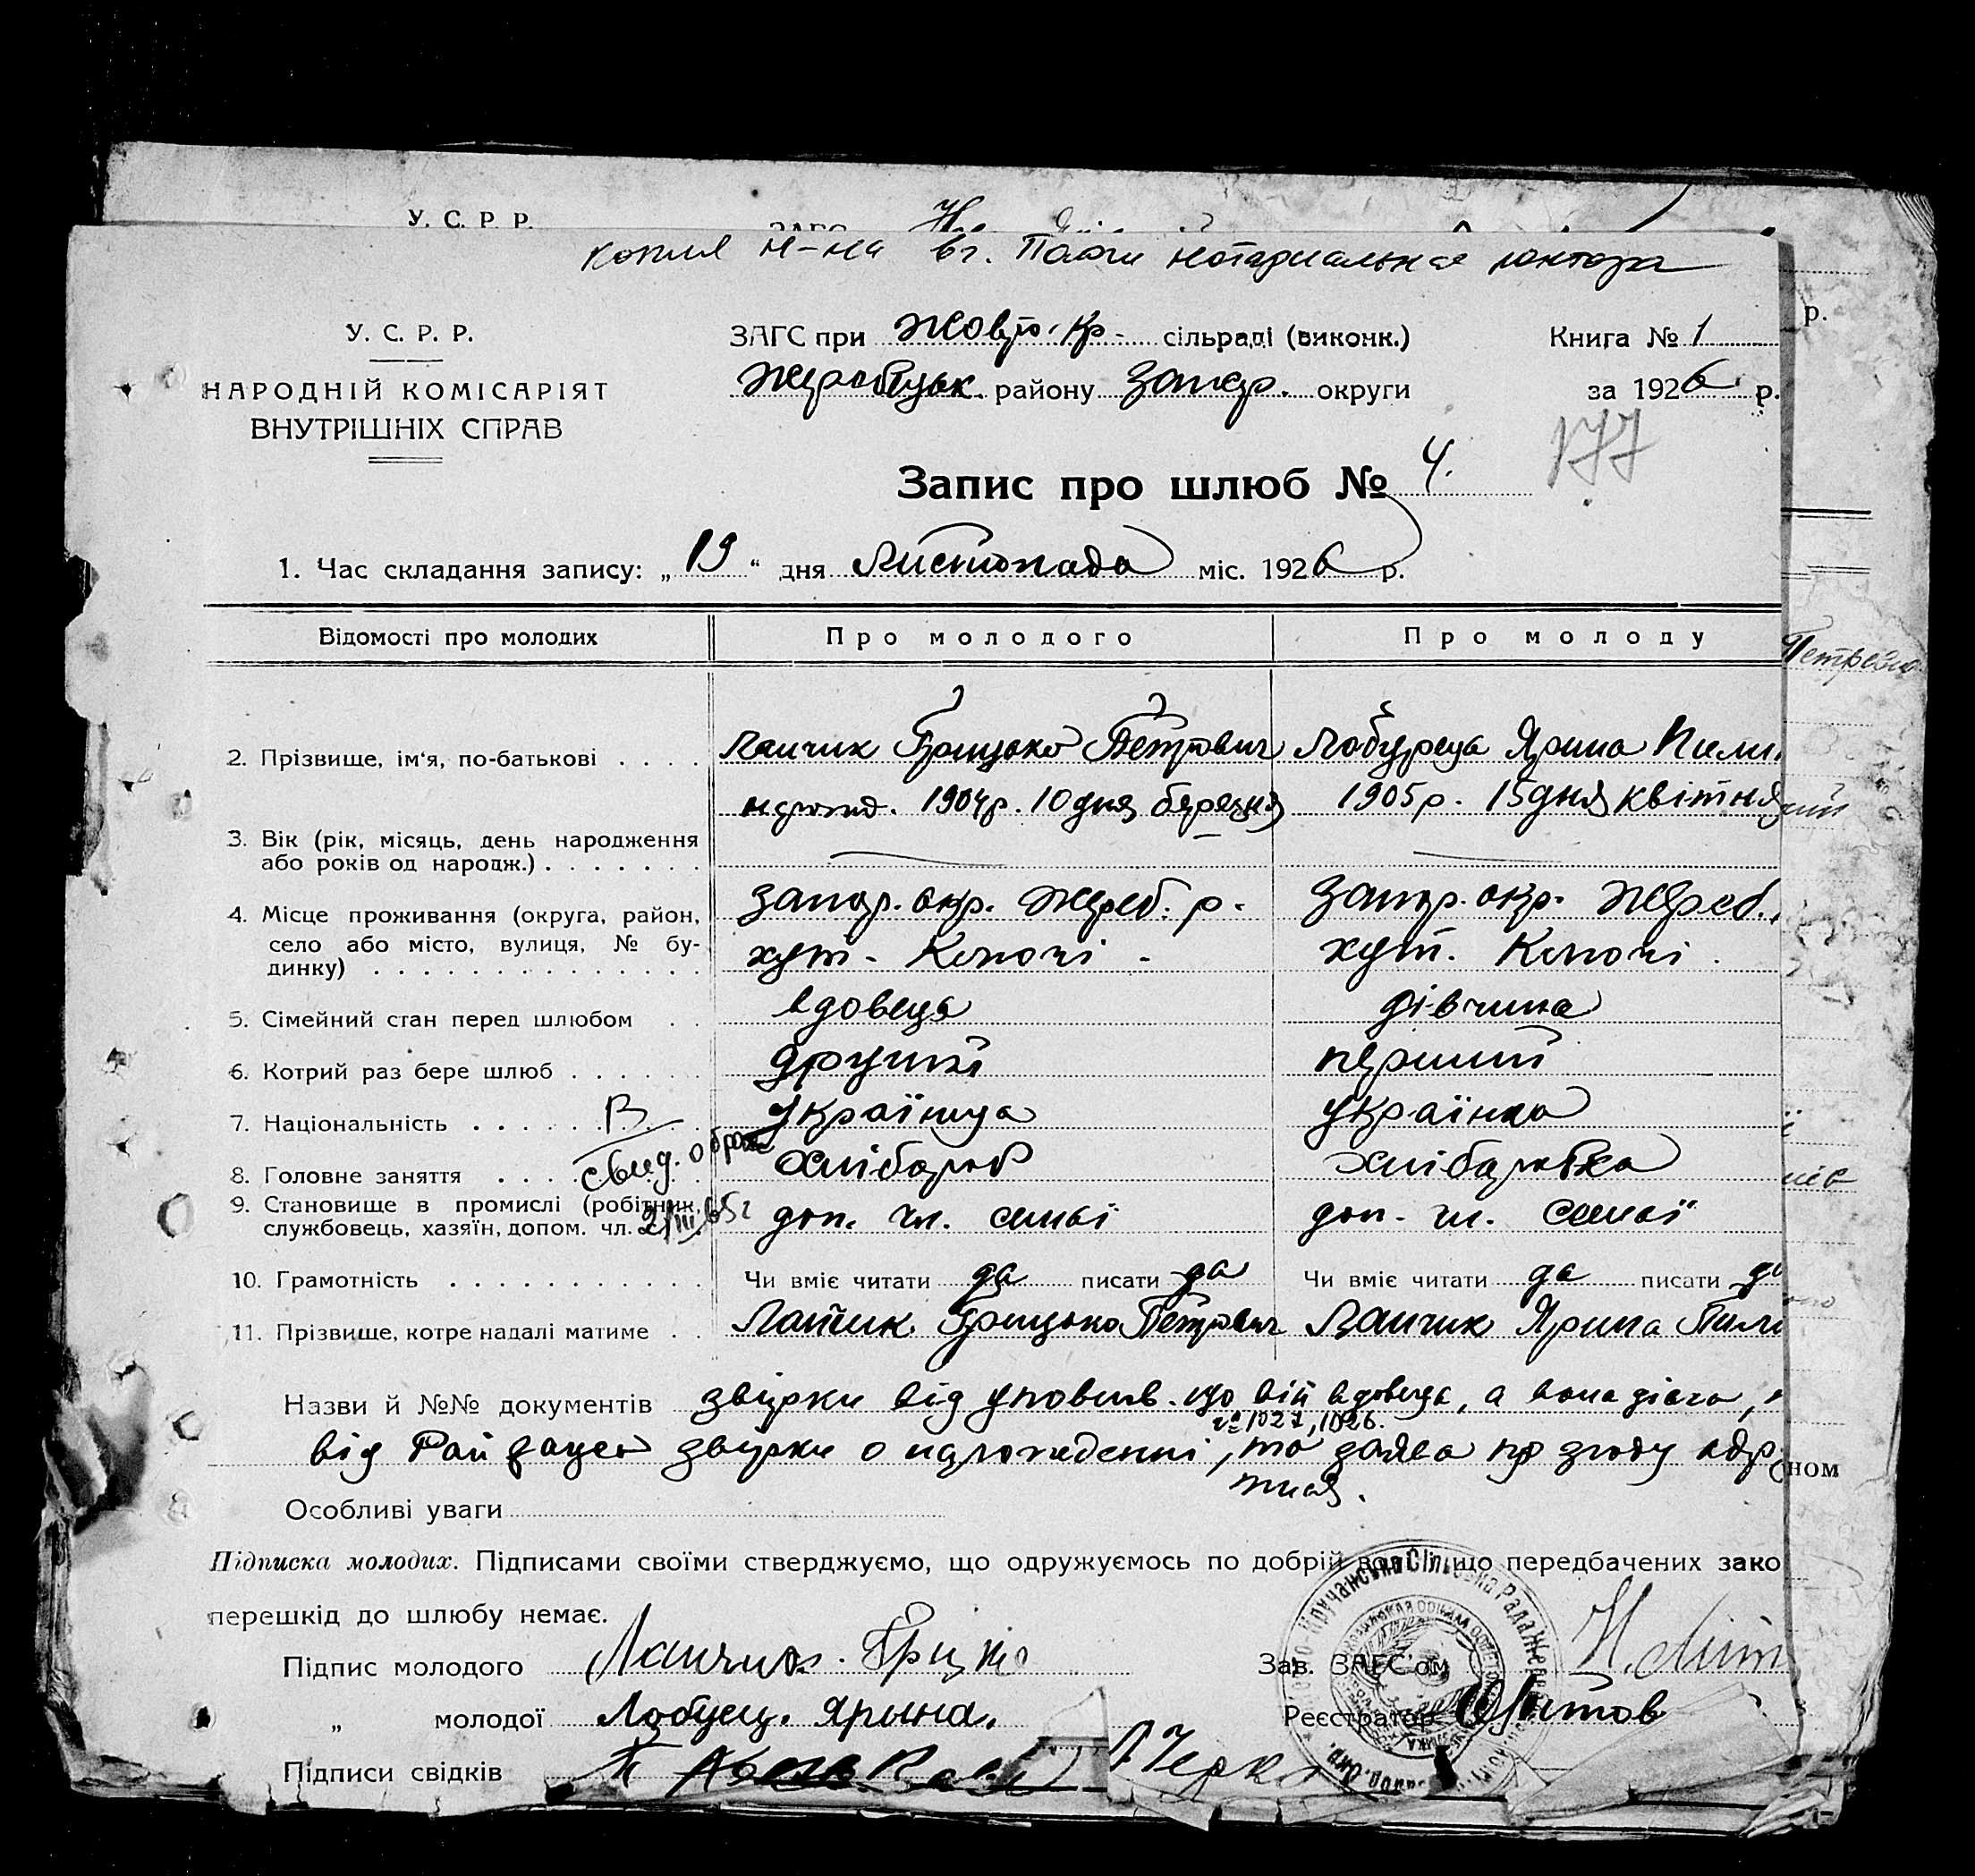 У. С. Р. Р.
копия н-на в г. нотариальная контора
У. С. Р. Р.
НАРОДНІЙ КОМІСАРІЯТ
ВНУТРІШНІХ СПРАВ
ЗАГС при Жовто-Кр- сільраді (виконк.)
Жеребецьк. району Запор. округи
Книга № 1
за 1926 р.
177
Запис про шлюб № 4.
1. Час складання запису: „19“ дня Листопада міс. 1926 р.
Відомості про молодих Про молодого Про молоду
2. Прізвище, ім'я, по-батькові . . . . Лапчик Грицько Петрович Лобурець Ярина Пили
3. Вік (рік, місяць, день народження або років од народж.) . . . . . . . народ. 1904р. 10 дня березня 1905р. 15 дня квітня
4. Місце проживання (округа, район, село або місто, вулиця, № будинку) . . . . . . . . . . . . . . Запор. окр. Жереб. р. Запор. окр. Жереб.
хут. Клпочі хут. Клпочі
5. Сімейний стан перед шлюбом . . вдовець дівчина
6. Котрий раз бере шлюб . . . . . . другий перший
7. Національність . . . . . . . українця українка
8. Головне заняття . . . . хлібороб хліборобка
В
свид. о браке
2/III 65г
9. Становище в промислі (робітник, службовець, хазяїн, допом. чл. доп. чл. сімьї доп. чл. сімьї
10. Грамотність . . . . . . . . . . . Чи вміє читати да писати да Чи вміє читати да писати да
11. Прізвище, котре надалі матиме . . Лапчик Грицько Петрович Лапчик Ярина Пили
Назви й №№ документів звірки від уповнв. що він вдовець, а вона дівча,
№ 1027, 1026.
від звірки о народженні, та заява про згоду одр
тися.
Особливі уваги
Підписка молодих. Підписами своїми стверджуємо, що одружуємось по добрій волі і що передбачених зако
перешкід до шлюбу немає.
Підпис молодого Лапчик Грицко
„ молодої Лобурец. Ярына.
Підписи свідків
Зав. ЗАГС'ом Н. Лит
Реєстратор
Петровна
ном
р.